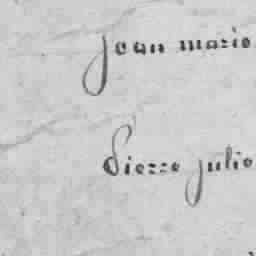 jean marie
Pierre julie